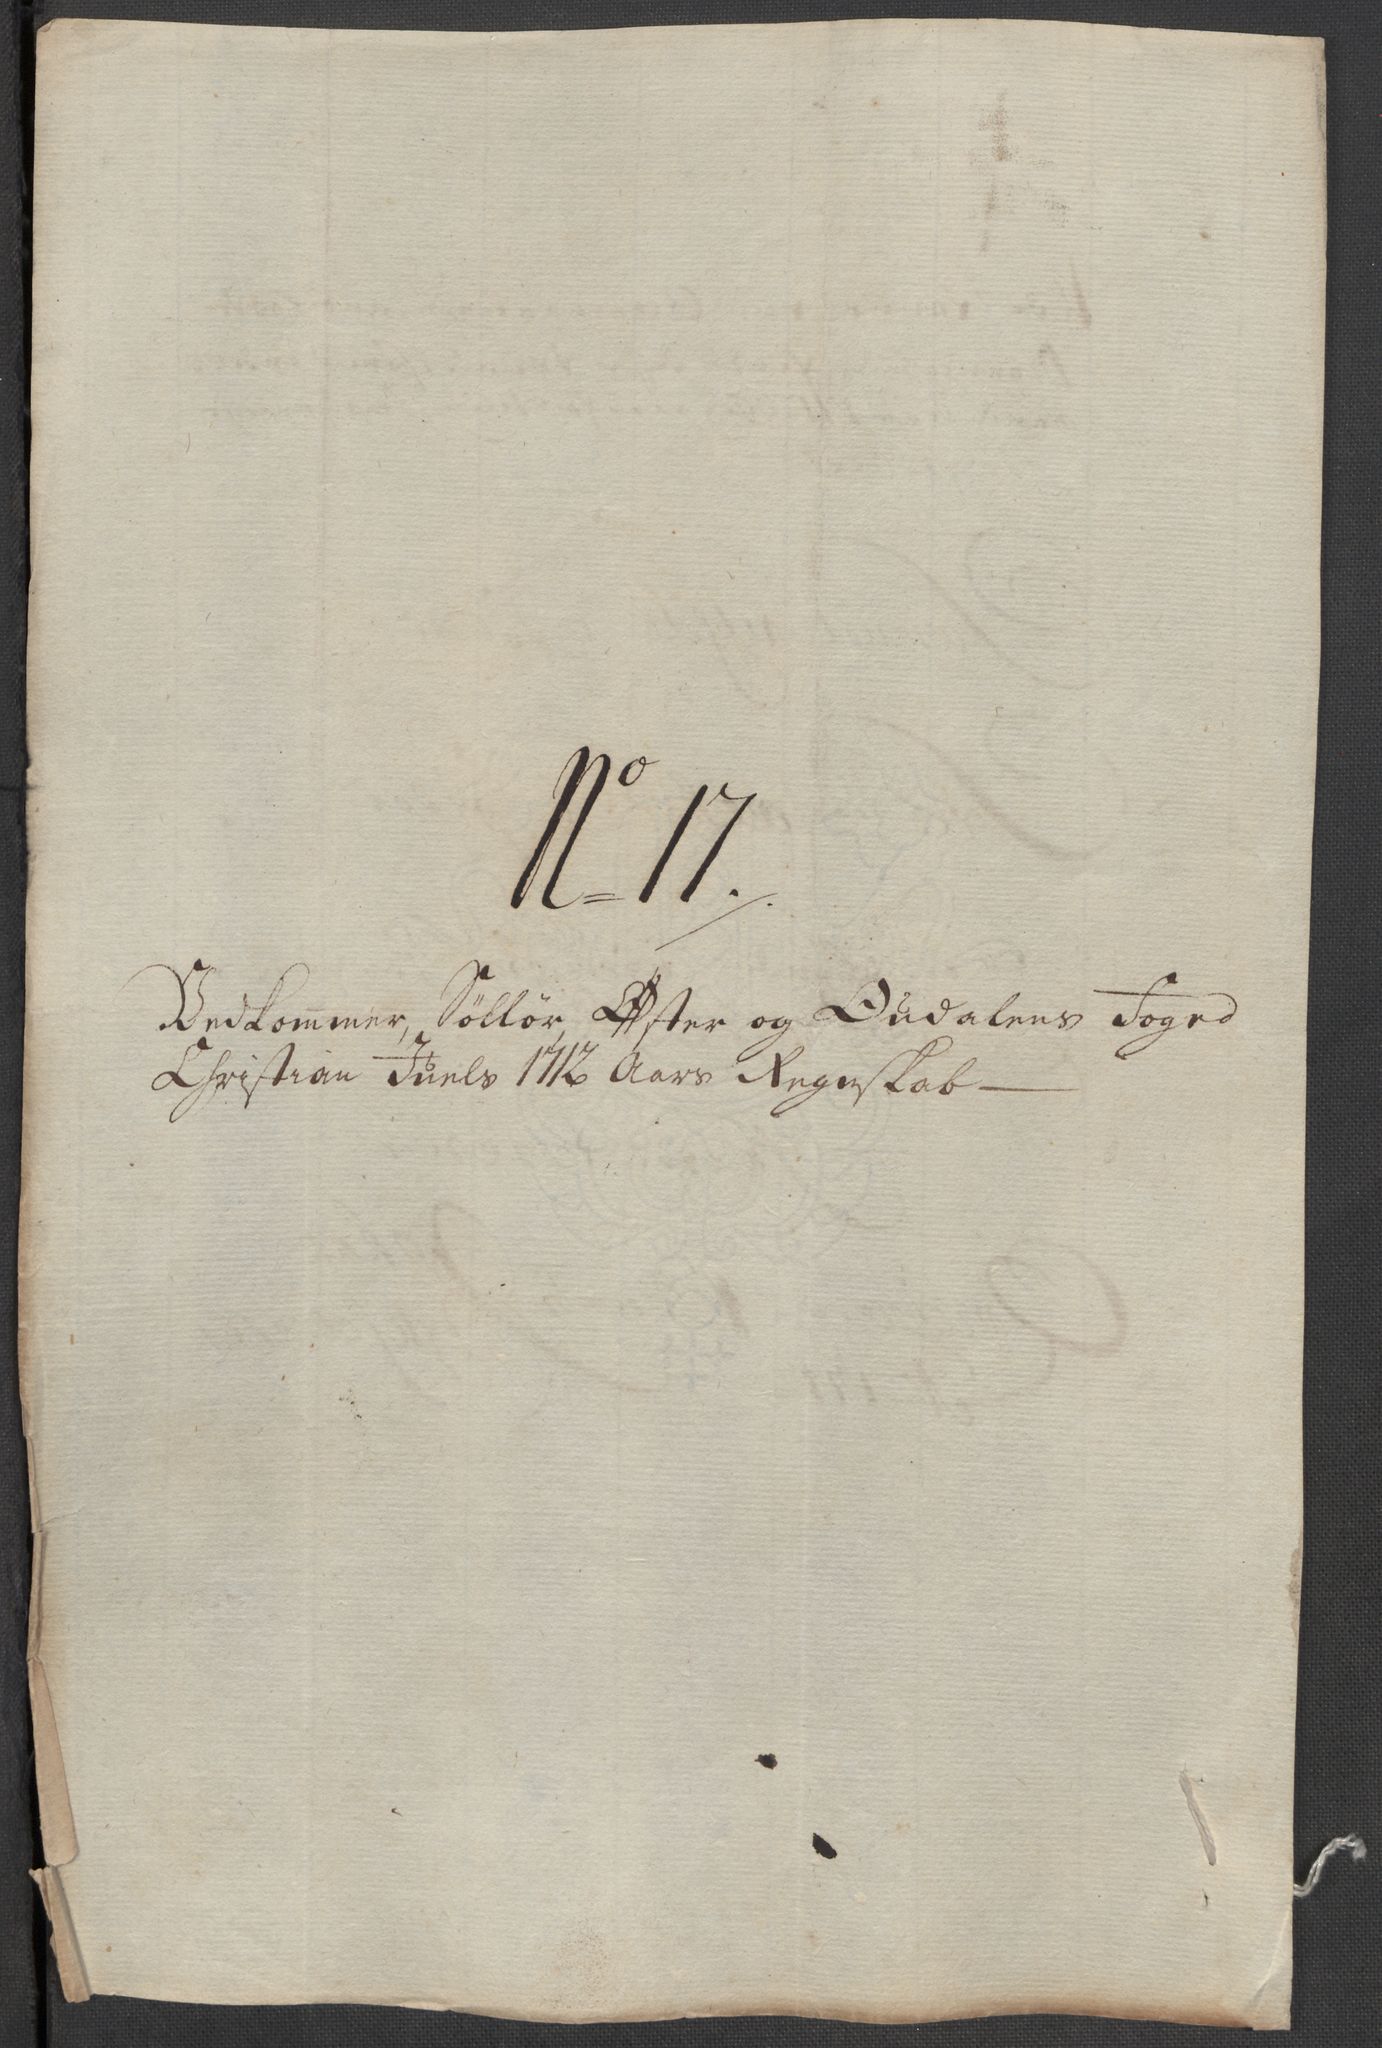 No 17.
Vedkommer, Söllör, Øster og Oudalens Foged
Christian Juels 1712 Aars Regnskab